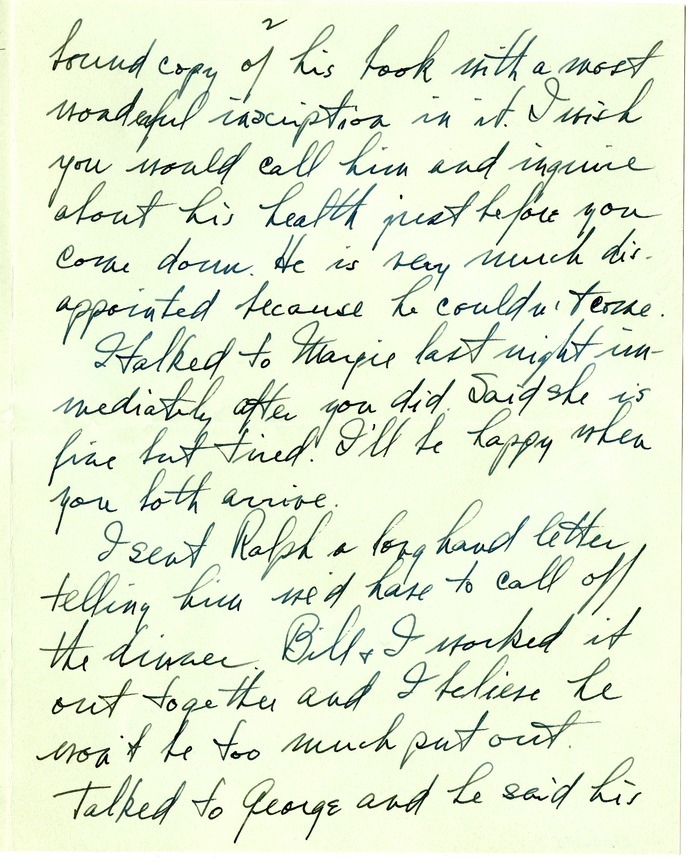 2
bound copy of his book with a most
wonderful inscription in it. I wish
you would call him and inquire
about his health just before you
come down. He is very much dis-
appointed because he couldn't come.
I talked to Margie last night im-
mediately after you did. Said she is
fine but tired. I'll be happy when
you both arrive.
I sent Ralph a long hand letter
telling him we'd have to call off
the dinner. Bill & I worked it
out together and I believe he
won't be too much put out.
Talked to George and he said his